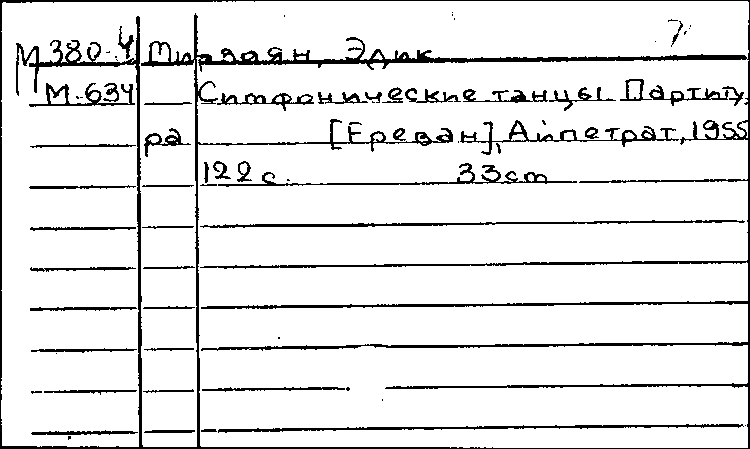 М 380-4 Мирзоян, Эдик 7
М-634 Симфонические танцы Партиту
ра [Ереван], Айпетрат, 1955
122 с. 33 cm